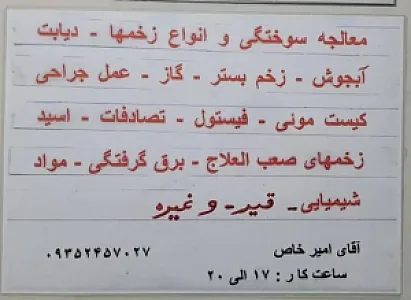 معالجه سوختگی و انواع زخمها - دیابت
آبجوش - زخم بستر - گاز - عمل جراحی
کیست مونی - فیستول - تصادفات - اسید
زخمهای صعب العلاج - برق گرفتگی - مواد
شیمیایی - قیر - و غیره
آقای امیر خاص
۰۹۳۵۲۴۵۷۰۲۷
ساعت کار : ۱۷ الی ۲۰